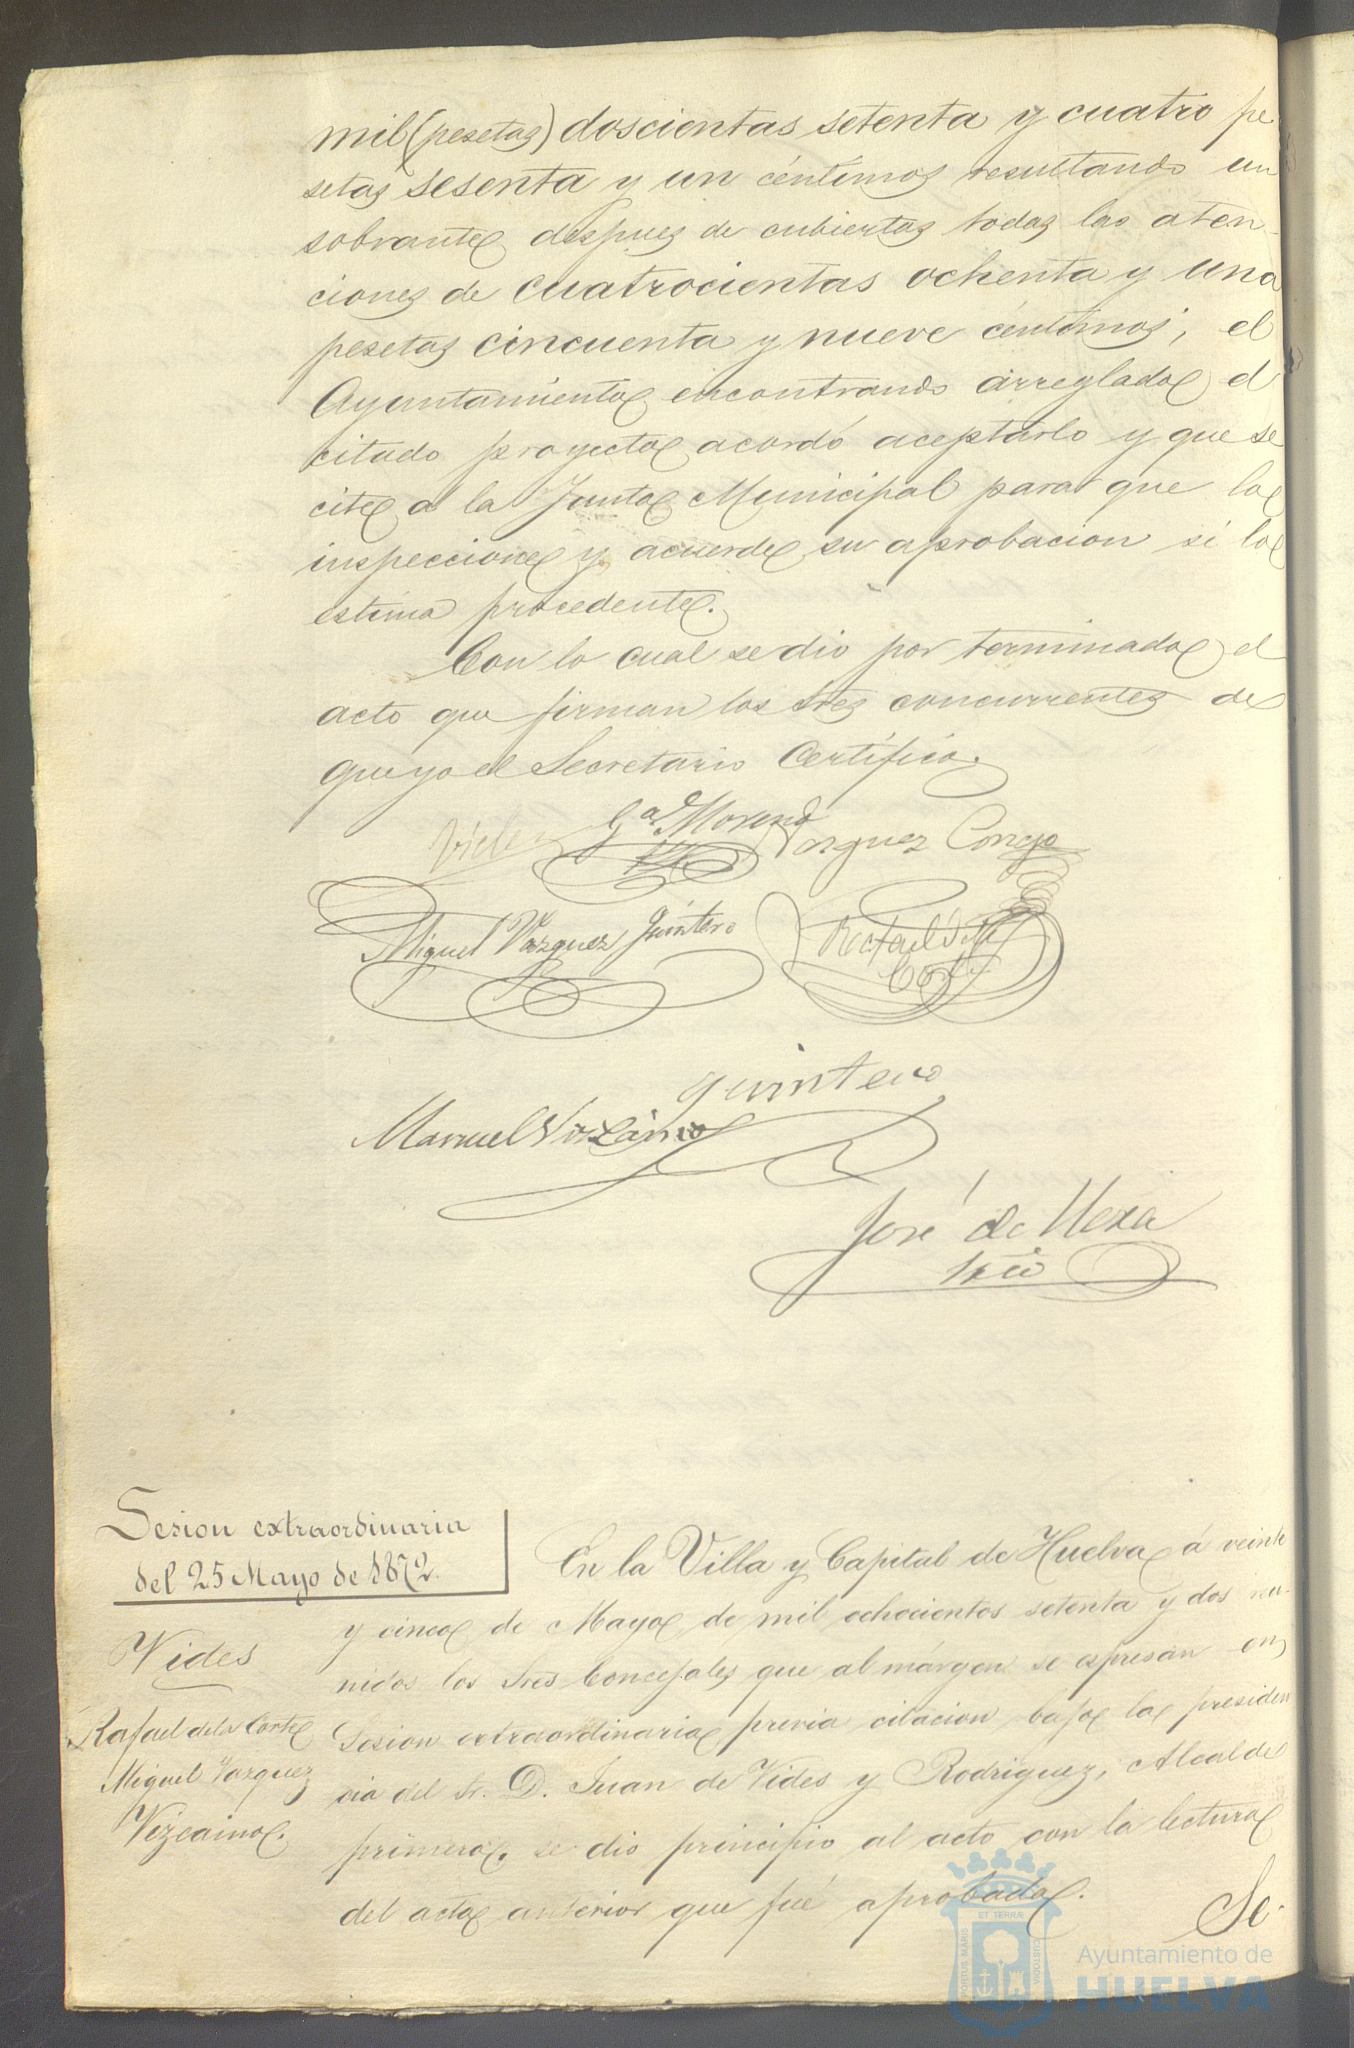 mil (pesetas) doscientas setenta y cuatro pe
setas sesenta y un céntimos resultando un
sobrante despues de cubiertas todas las aten-
ciones de cuatrocientas ochenta y una
pesetas cincuenta y nueve céntimos; el
Ayuntamiento encontrando arreglado el
citado proyecto acordó aceptarlo y que se
cite a la Junta Municipal para que lo
inspeccione y acuerde su aprobacion si lo
estima procedente.
Con lo cual se dio por terminado el
acto que firman los Sres concurrentes de
que yo el Secretario Certifico.
Vides
Ga Moreno
Vazquez Conejo
Miguel Vazquez Quintero
Rafael de la
Corte
Quintero
Manuel Vizcaino
José de Mexa
Srio
Sesion extraordinaria
del 25 Mayo de 1872.
Vides
Rafael de la Corte
Miguel Vazquez
Vizcaino.
En la Villa y Capital de Huelva á veinte
y cinco de Mayo de mil ochocientos setenta y dos reu-
nidos los Sres Concejales que al márgen se espresan en
Sesion extraordinaria previa citacion bajo la presiden
cia del Sr. D. Juan de Vides y Rodriguez, Alcalde
primero, se dio principio al acto con la lectura
del acta anterior que fué aprobada.
Se
ET TERRÆ
PORTUS MARIS
CUSTODIA
Ayuntamiento de
HUELVA